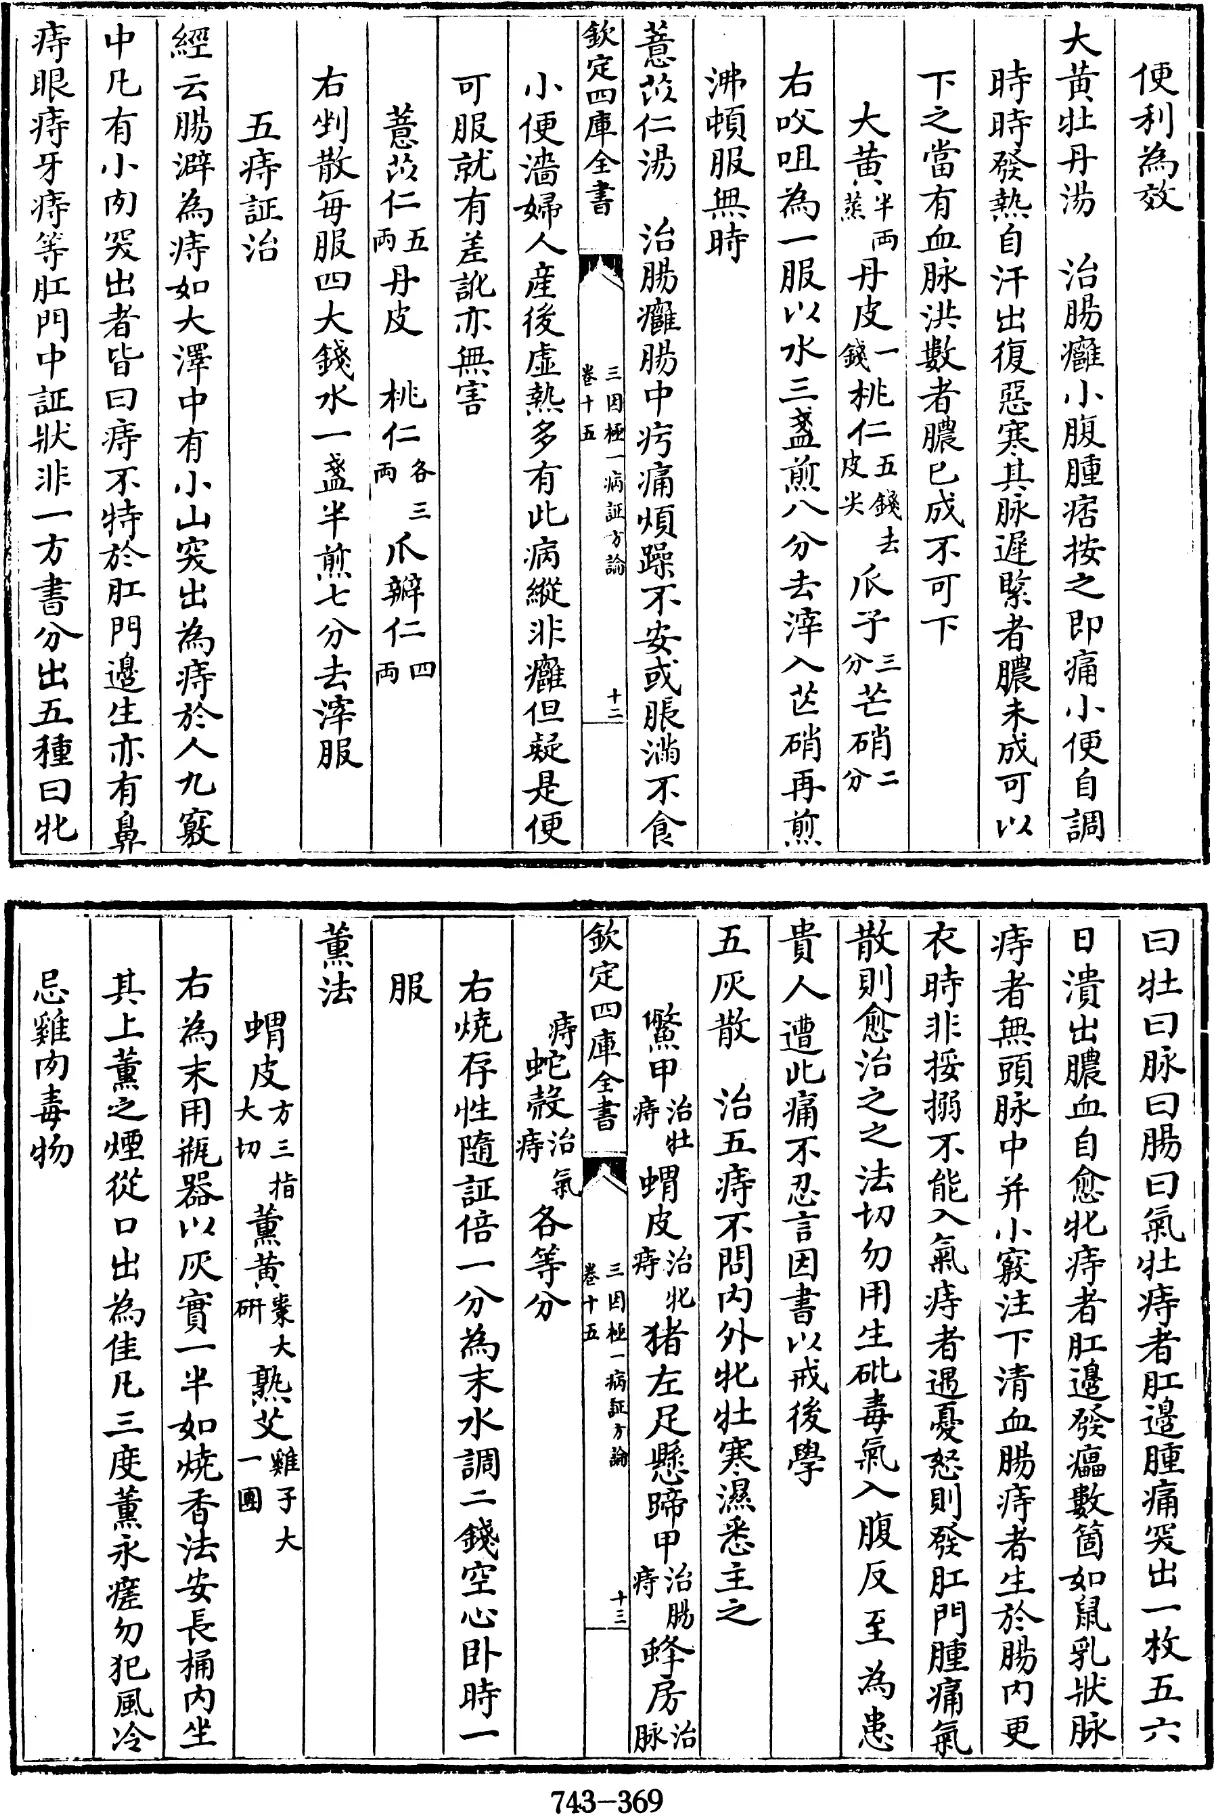 便利為效
大黄牡丹湯　治腸癰小腹腫痞按之即痛小便自調
時時發熱自汗出復惡寒其脉遲緊者膿未成可以
下之當有血脉洪數者膿已成不可下
大黄半兩蒸丹皮一錢桃仁五錢去皮尖爪子三分芒硝二分
右㕮咀為一服以水三盞煎八分去滓入芒硝再煎
沸頓服無時
薏苡仁湯　治腸癰腸中㽲痛煩躁不安或脹滿不食
欽定四庫全書　三因極一病証方論卷十五　十二
小便濇婦人産後虛熱多有此病縱非癰但疑是便
可服就有差訛亦無害
薏苡仁五兩丹皮　桃仁各三兩　爪瓣仁四兩
右剉散每服四大錢水一盞半煎七分去滓服
五痔証治
經云腸澼為痔如大澤中有小山突出為痔於人九竅
中凡有小肉突出者皆曰痔不特於肛門邉生亦有鼻
痔眼痔牙痔等肛門中証狀非一方書分出五種曰牝
曰牡曰脉曰腸曰氣牡痔者肛邉腫痛突出一枚五六
日潰出膿血自愈牝痔者肛邉發瘟數箇如鼠乳狀脉
痔者無頭脉中并小竅注下清血腸痔者生於腸内更
衣時非挼搦不能入氣痔者遇憂怒則發肛門腫痛氣
散則愈治之之法切勿用生砒毒氣入腹反至為患
貴人遭此痛不忍言因書以戒後學
五灰散　治五痔不問内外牝牡寒濕悉主之
鱉甲治牡痔　蝟皮治牝痔猪左足懸蹄甲治腸痔蜂房治脉
欽定四庫全書　三因極一病証方論卷十五　十三
痔蛇殼治氣痔　各等分
右燒存性隨証倍一分為末水調二錢空心卧時一
服
薫法
蝟皮方三指大切薫黄棗大研熟艾雞子大一團
右為末用瓶器以灰實一半如燒香法安長桶内坐
其上薫之煙從口出為佳凡三度薫永瘥勿犯風冷
忌雞肉毒物
743-369